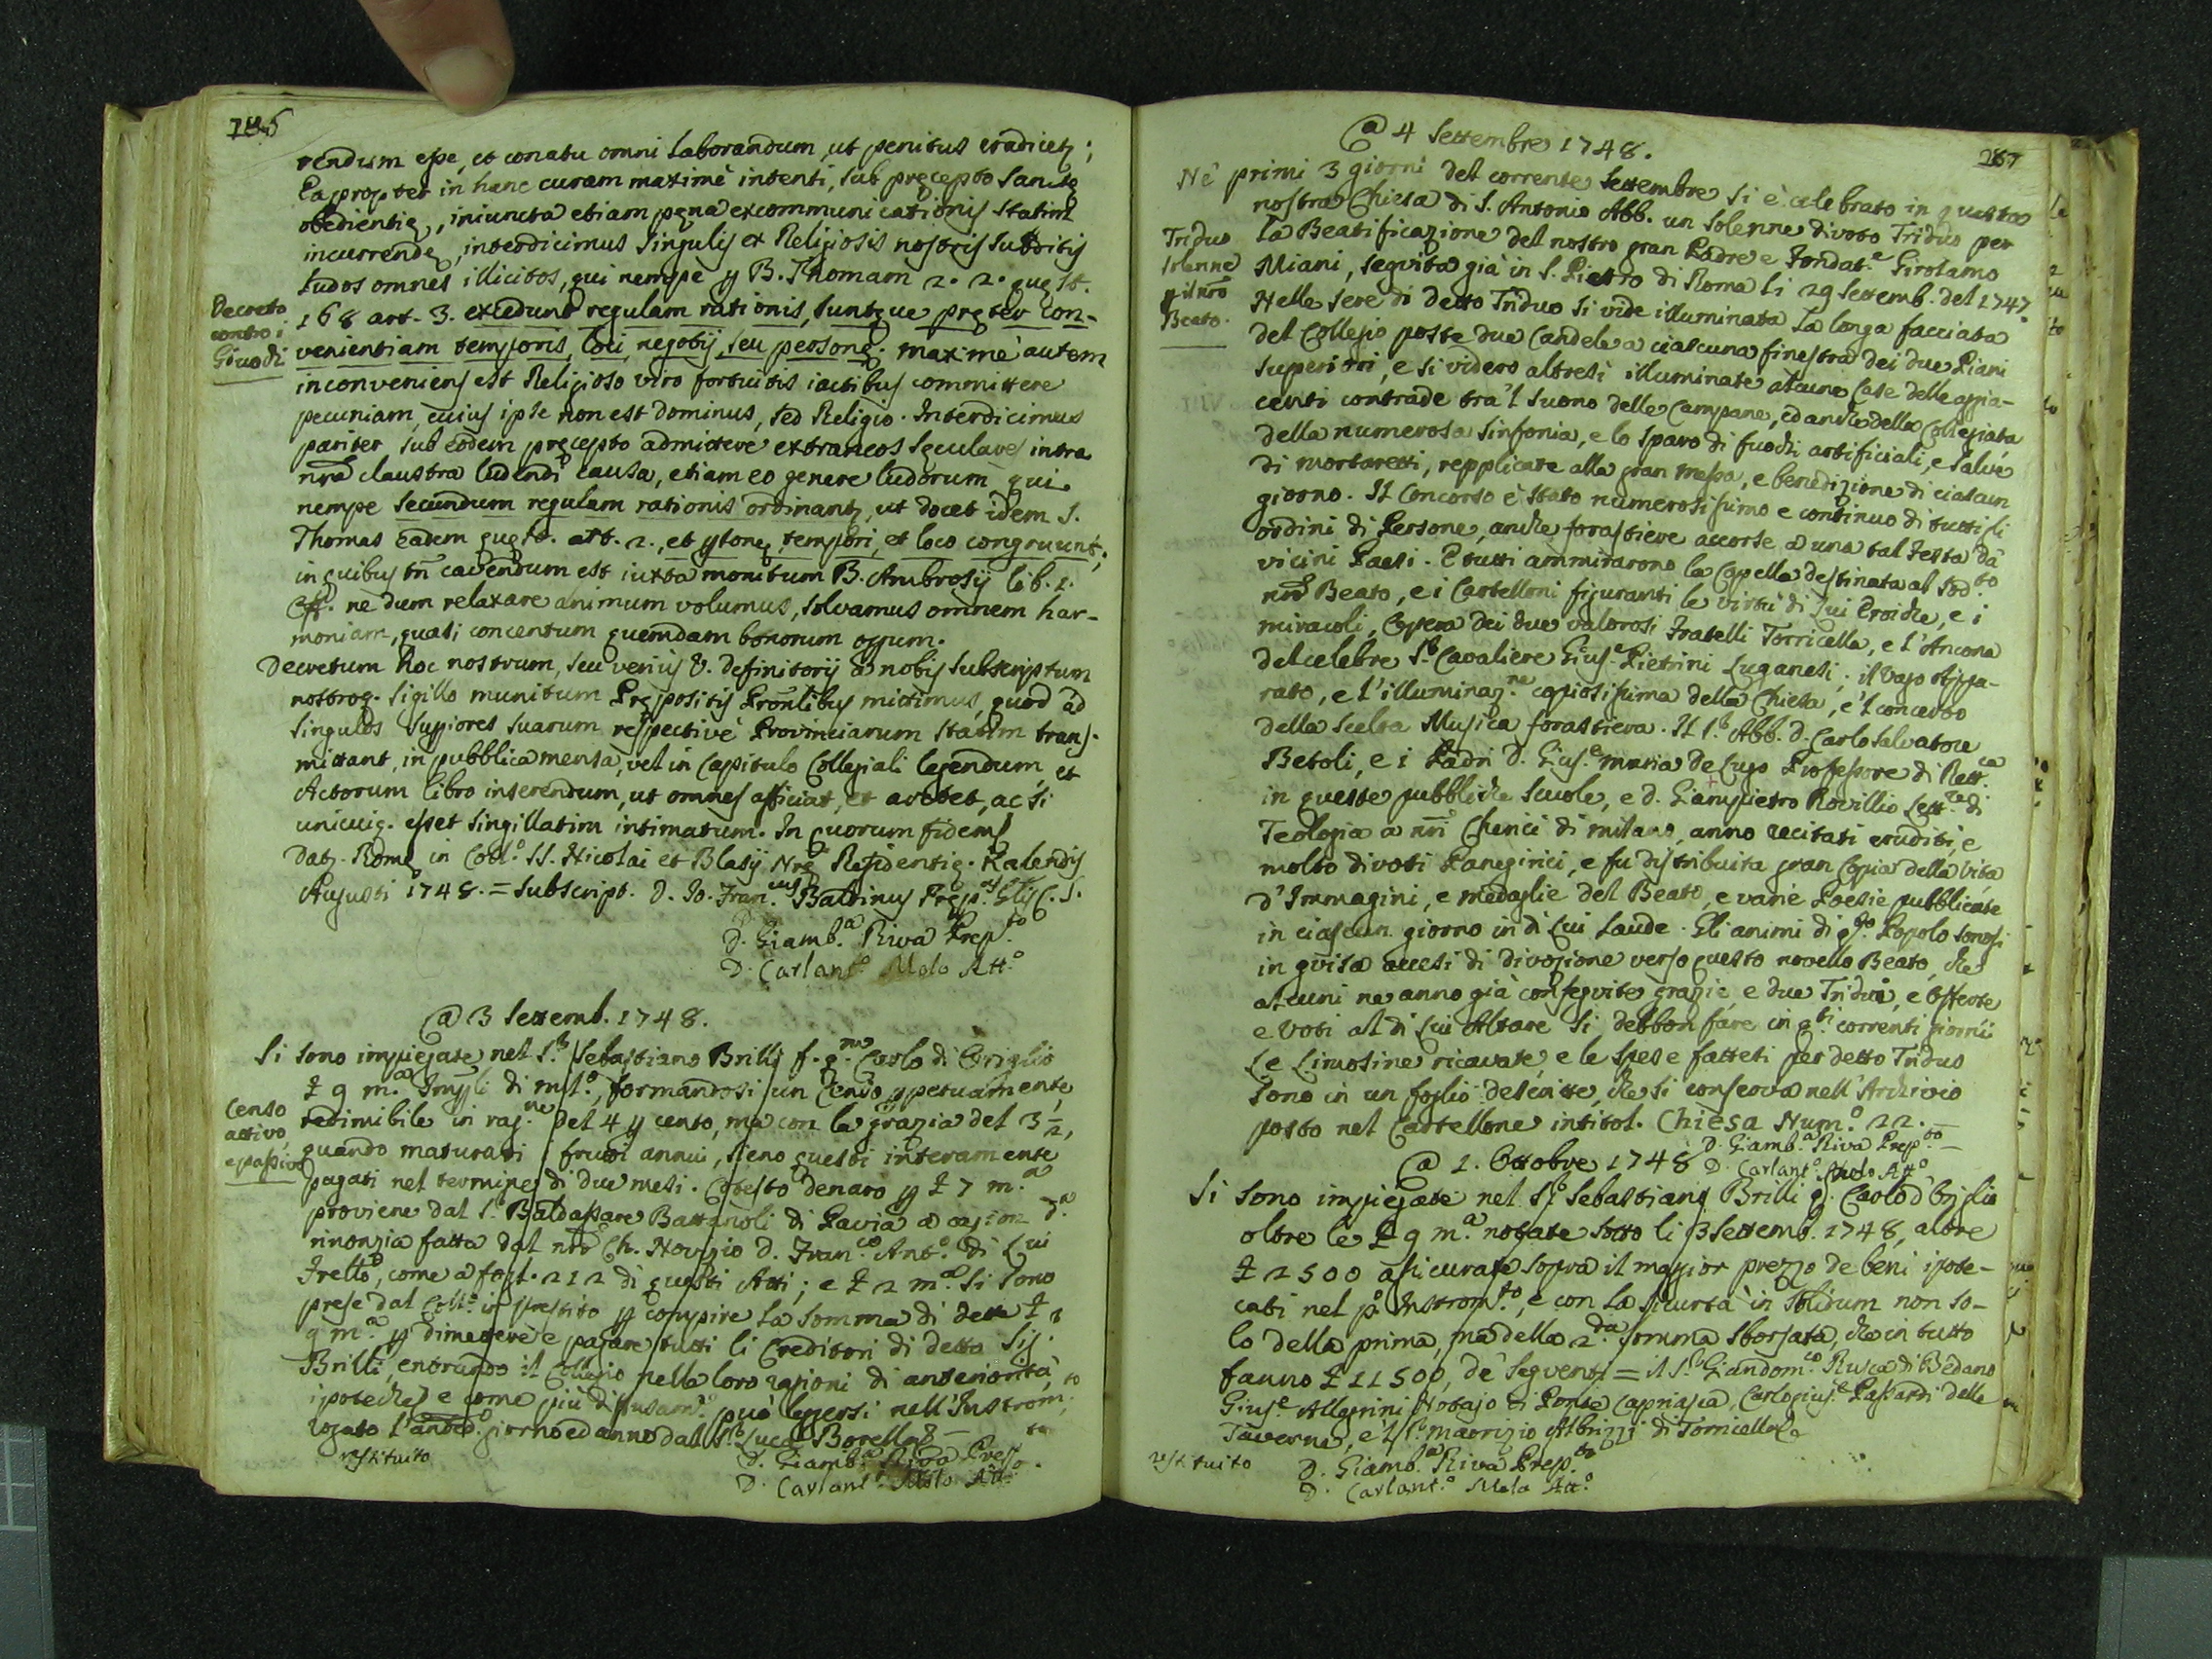 rendum esse, et conatu omni laborandum, ut penitus eradicetz;
Eapropter in hanc curam maximè intenti, sub pręcepto Sanctę
obedientię, iniuncta etiam pęna excommunicationis statim
incurrendę, interdicimus singulis ex Religiosis nostris subditis
ludos omnes illicitos, qui nempè p B. Thomam 2. 2. quęst.
Decreto
contro i
Giuochi
168 art. 3. excedunt regulam rationis, suntque pręter con-
venientiam temporis, loci, negotij, seu personę. maximè autem
inconveniens est Religioso viro fortuitis iactibus committere
pecuniam, cuius ipse non est dominus, sed Religio. Interdicimus
pariter sub eodem pręcepto admittere extraneos sęculares intra
nra claustra ludendi causa, etiam eo genere ludorum qui
nempe secundum regulam rationis ordinantz, ut docet idem S.
Thomas eadem quęst. art. 2., et psonę, tempori, et loco congruunt;
in quibus tn cavendum est iuxta monitum B. Ambrosij lib. 1.
Off. ne dum relaxare animum volumus, solvamus omnem har-
moniam, quasi concentum quemdam bonorum opum.
Decretum hoc nostrum, seu verius V. Definitorij a nobis subscriptum
nostroq. sigillo munitum Prępositis Pronlibus mittimus, quod ad
singulos Supiores suarum respectivè Provinciarum statim trans-
mittant, in pubblica mensa, vel in Capitulo Collegiali legendum, et
Actorum libro inserendum, ut omnes afficiat, et arctet, ac si
unicuiq. esset singillatim intimatum. In quorum fidem
Datz. Romę in Coll.o SS. Nicolai et Blasij Nrę Residentię. Kalendis
Augusti 1748. = subscript. D. Jo. Fran.cus Baldinus Pręp.s Glis C. S.
D. Giamb.a Riva Prep.to
D. Carlant.o Molo Att.o
@ 3 Settemb. 1748.
Si sono impiegate nel S.r Sebastiano Brilli f. q.m Carlo di Origlio
£ 9 m.a Impli di mil.o, formandosi un Censo ppetuamente
Censo
attivo,
e passivo
redimibile in rag.ne del 4 p cento, ma con la grazia del 3 ½,
quando maturati i frutti annui, sieno questi interamente
pagati nel termine di due mesi. Cotesto denaro p £ 7 m.a
proviene dal S.r Baldassare Battaricoli di Pavia a cagion d.a
rinonzia fatta dal nro Ch. Novizio D. Fran.co Ant.o di Lui
Frello, come a fogl. 212 di questi Atti; e £ 2 m.a si sono
prese dal Coll.o in prestito p compire la somma di dette £
9 m.a p dimettere e pagare tutti li Creditori di detto Sig.
Brilli, entrando il Collegio nella loro ragioni di anteriorità,
ipoteche, e come più diffusam.e può legersi nell'Instrom.to
rogato l'anted.o giorno ed anno dal S.r Luca Borella
restituito
D. Giamb.a Riva Prep.to
D. Carlant.o Molo Att.o
@ 4 Settembre 1748.
267
Nè primi 3 giorni del corrente Settembre si è celebrato in questa
nostra Chiesa di S. Antonio Abb. un solenne divoto Triduo per
Triduo
solenne
p il nro
Beato.
la Beatificazione del nostro gran Padre e Fondat.e Girolamo
Miani, seguita già in S. Pietro di Roma li 29 Settemb. del 1747.
Nelle sere di detto Triduo si vide illuminata la longa facciata
del Collegio poste due Candele a ciascuna finestra dei due Piani
superiori, e si videro altresì illuminate alcune Case delle agia-
centi contrade tra'l suono delle Campane, ed anche della Collegiata
della numerosa sinfonia, e lo sparo di fuochi artificiali, e salve
di mortaretti, repplicate alla gran messa, e benedizione di ciascun
giorno. Il Concorso è stato numerosissimo e continuo di tutti li
ordini di Persone, anche forastiere accorse a una tal Festa da
vicini Paesi. E tutti ammirarono la Capella destinata al sod.to
nro Beato, e i Cartelloni figuranti le virtù di lui Eroiche, e i
miracoli, Opera dei due valorosi Fratelli Torricella, e l'Ancona
del celebre S.r Cavaliere Gius.e Pietrini Luganesi; il vago Appa-
rato, e l'illuminaz.ne copiosissima della Chiesa, e'l concerto
della scelta Musica forastiera. Il S.r Abb. D. Carlo Salvatore
Betoli, e i Padri D. Gius.e maria De Lugo Professore di Rett.ca
in queste pubbliche scuole, e D. Giampietro Rovillio Lett.re di
Teologia a nri Chierici di milano, anno recitati eruditi, e
molto divoti Panegirici, e fu distribuita gran Copia della vita
d'Immagini, e medaglie del Beato, e varie Poesie pubblicate
in ciascun giorno in di Lui Laude. Gli animi di q.to Popolo sonosi
in guisa accesi di divozione verso questo novello Beato, che
alcuni ne anno già conseguite grazie, e due Tridui, e offerte
e Voti al di Lui Altare si debbon fare in q.ti correnti giorni
Le Limosine ricavate, e le spese fattesi per detto Triduo
sono in un foglio descritte, che si conserva nell'Archivio
posto nel Cartellone intitol. Chiesa Num.o 22.
D. Giamb.a Riva Prep.to
@ 1. Ottobre 1748 D. Carlant.o Molo Att.o
Si sono impiegate nel S.r Sebastiano Brilli q. Carlo d'Origlio
oltre le £ 9 m.a notate sotto li 3 Settemb. 1748, altre
£ 2500 assicurate sopra il maggior prezzo de beni ipote-
cati nel p.o Instrom.to, e con la sicurtà in solidum non so-
lo della prima, ma della 2.da somma sborsata, che in tutto
fanno £ 11500, de' seguenti = il S.r Giandom.co Rusca di Bedano
Gius.e Allegrini Notajo di Ponte Capriasca, Carlogius.e Passardi delle
Taverne, e'l S.r Maorizio Albrizzi di Torricella
restituito
D. Giamb.a Riva Prep.to
D. Carlant.o Molo Att.o